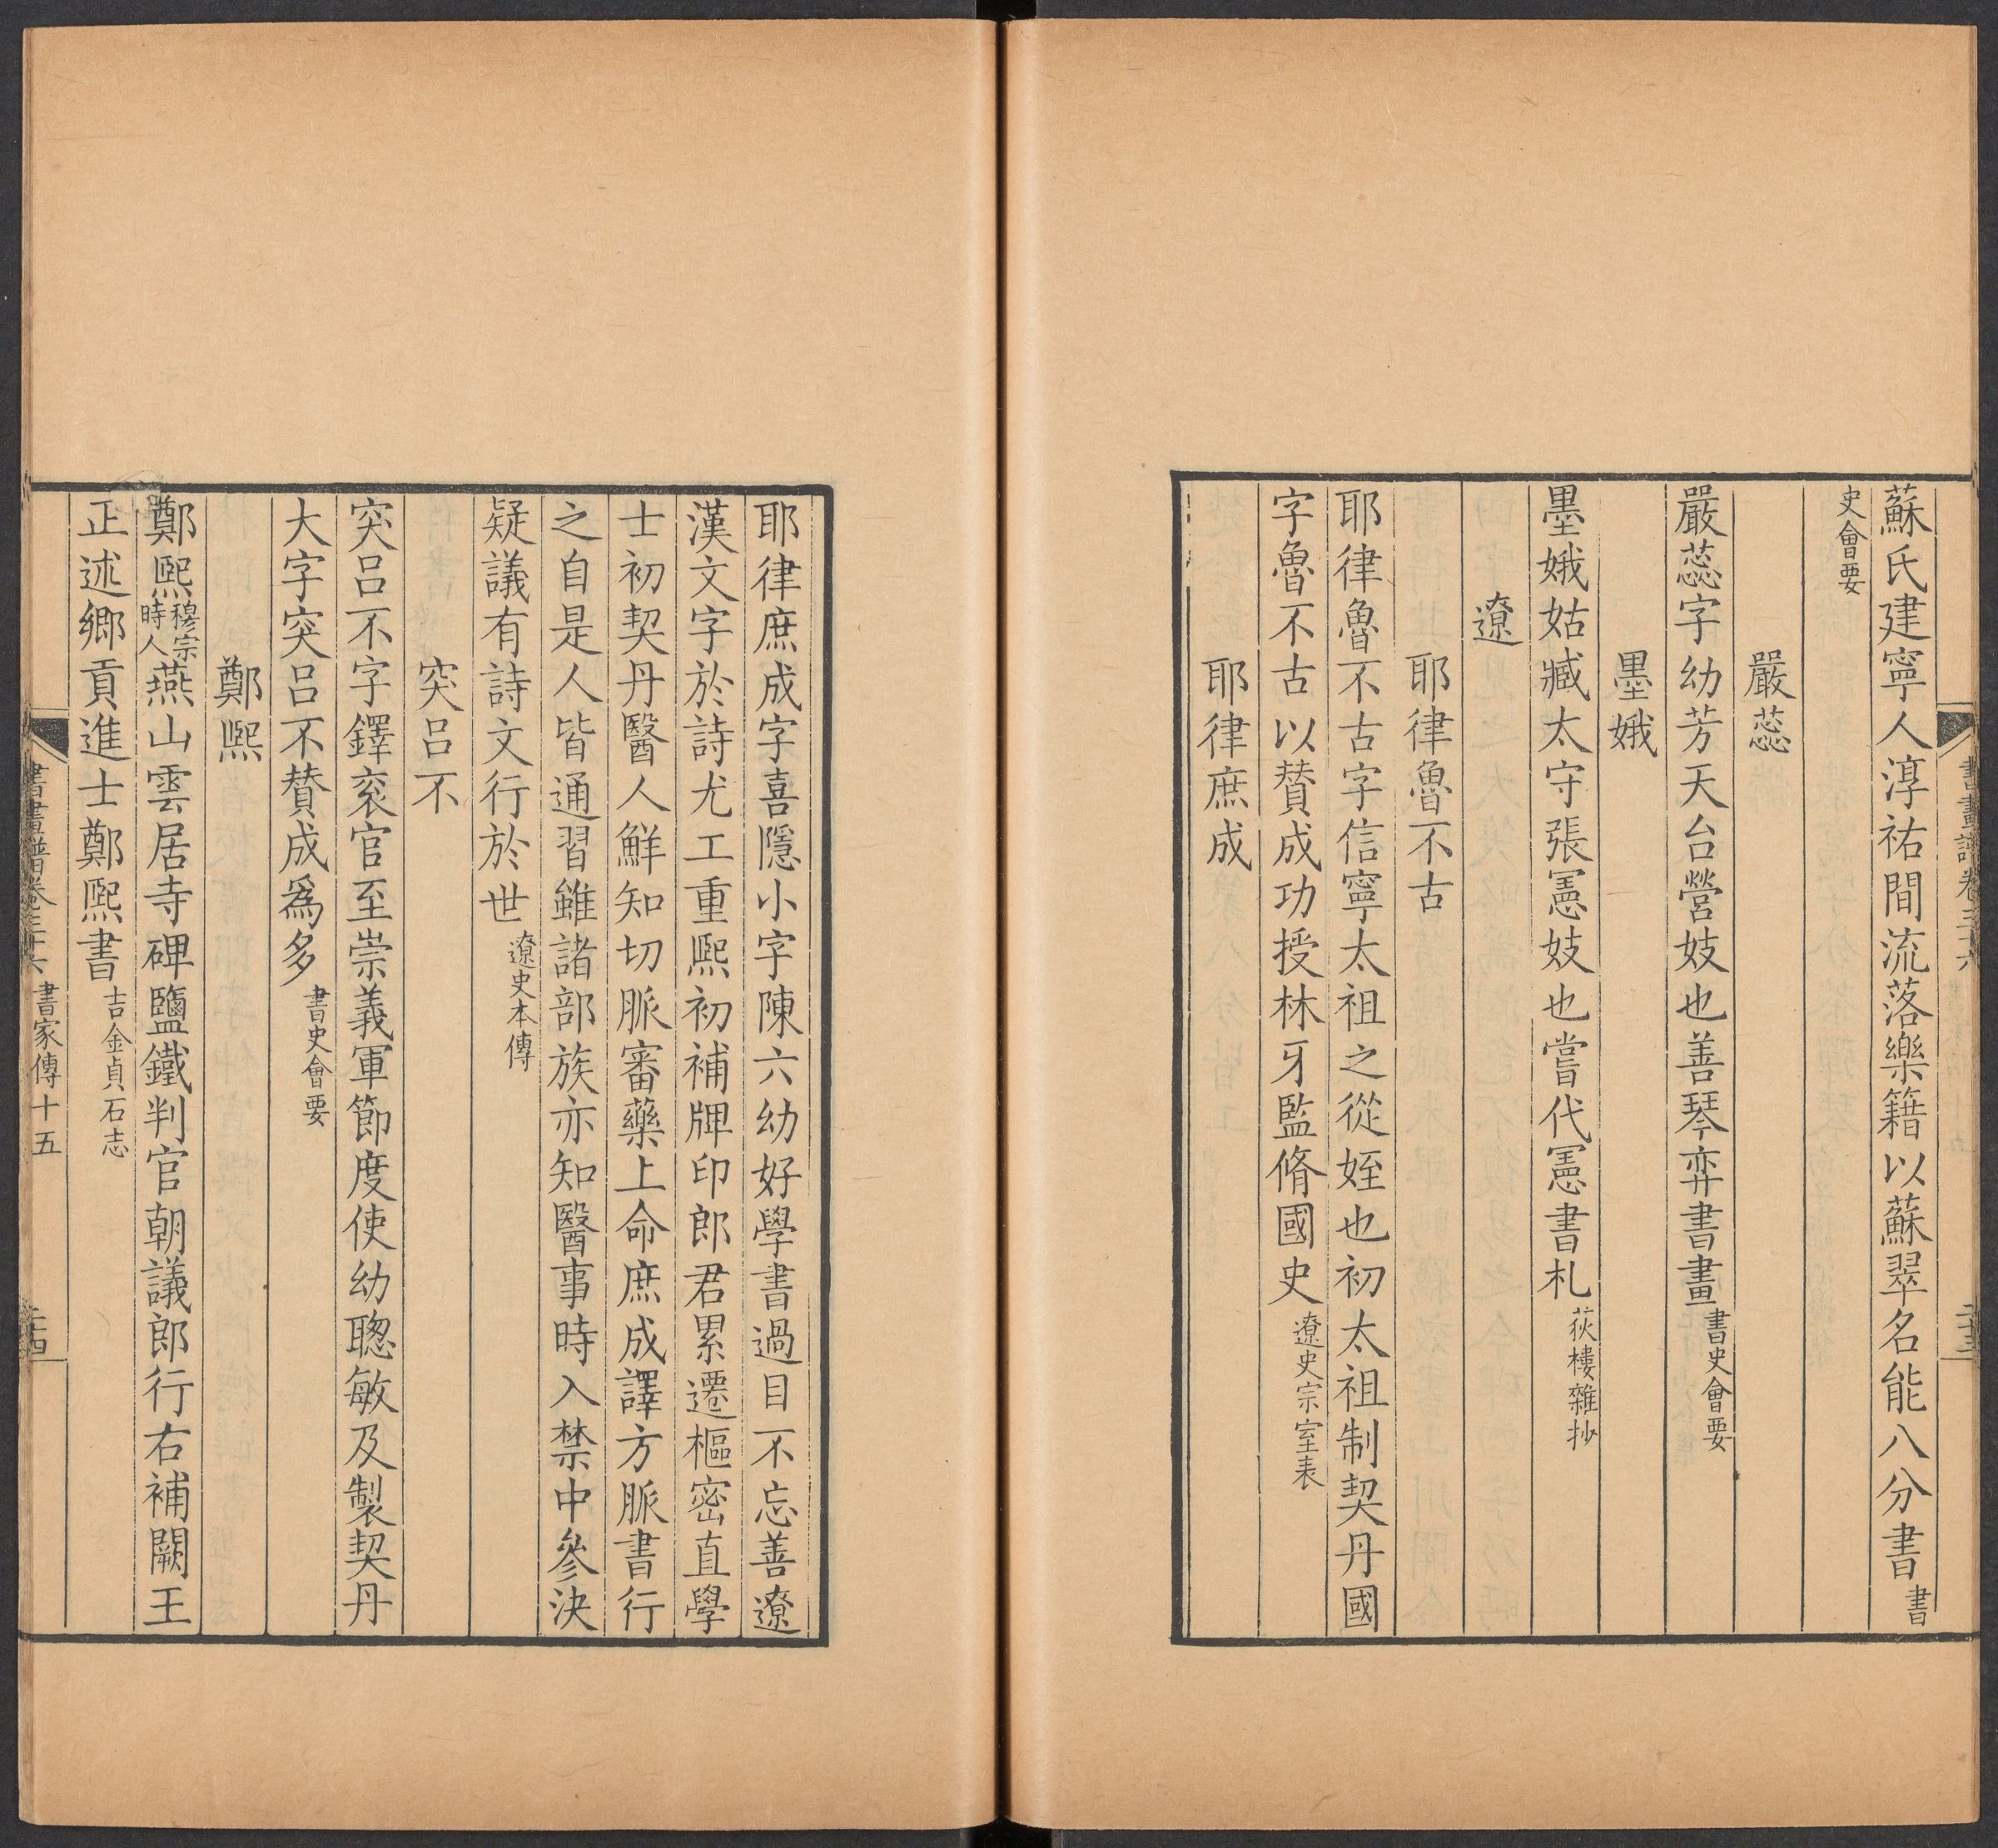 蘇氏建寧人淳祐間流落樂籍以蘇翠名能八分書書
史會要
嚴蕊
嚴蕊字幼芳天台營妓也善琴弈書畫書史會要
墨娥
墨娥姑臧太守張憲妓也嘗代憲書札荻樓雜抄
遼
耶律魯不古
耶律魯不古字信寧太祖之從姪也初太祖制契丹國
字魯不古以贊成功授林牙監脩國史遼史宗室表
耶律庶成
書畫譜卷三十六
二十三
耶律庶成字喜隱小字陳六幼好學書過目不忘善遼
漢文字於詩尤工重熙初補牌印郎君累遷樞密直學
士初契丹醫人鮮知切脈審藥上命庶成譯方脈書行
之自是人皆通習雖諸部族亦知醫事時入禁中參決
疑議有詩文行於世遼史本傳
突呂不
突呂不字鐸袞官至崇義軍節度使幼聰敏及製契丹
大字突呂不贊成爲多書史會要
鄭熙
鄭熙穆宗時人燕山雲居寺碑鹽鐵判官朝議郎行右補闕王
正述鄉貢進士鄭熙書吉金貞石志
書畫譜卷三十六 書家傳十五
二十四